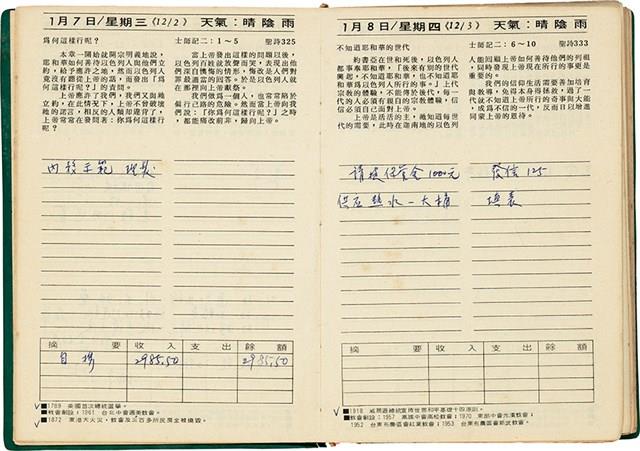 1月7日/星期三(12/2) 天氣:晴陰雨
為何這樣行呢? 士師記二:1~5 聖詩325
本章一開始就開宗明義地說,
耶和華如何善待以色列人與他們立
約,給予應許之地,然而以色列人
竟沒有聽從耶和華的話,而發出「為
何這樣行呢?」的責問。
上帝應許了我們,我們又與祂
立約,在此情況下,上帝不曾破壞
祂的諾言,相反的人類卻違背了,
上帝常常在發問著:你為何這樣行
呢?
當上帝發出這樣的問題以後,
以色列百姓就放聲而哭,表現出他
們深自懊悔的情形,悔改是人們對
罪最適當的回答。於是以色列人就
在那裡向上帝獻祭。
我們做為一個人,也常常陷於
偏行己路的危險。然而當上帝向我
們說:「你為何這樣行呢?」之時
,都能痛改前非,歸向上帝。
內務示範
摘要 收入 支出 餘額
自 2985.50 2985.50
■1789 美國首次總統選舉。
■教會創設:1961 台北中會
■1872 東港大火災,教會及三百多所民房全被燒毀。
1月8日/星期四(12/3) 天氣:晴陰雨
不知道耶和華的世代 士師記二:6~10 聖詩333
約書亞在世和死後,以色列人
都事奉耶和華,「後來有別的世代
興起,不知道耶和華,也不知道耶
和華為以色列人所行的事。」上代
宗教的體驗,不能傳於後代,每一
代的人必須有親自的宗教體驗,信
信必須自己面對上帝。
上帝是活活的主,祂知道每世
代的需要,此時在迦南地的以色列
人能回顧上帝如何善待他們的列祖
,同時發現上帝現在所行的事更是
重要的。
我們的信仰生活需要善加培育
與教導,免得本身得拯救,過了一
代就不知道上帝所行的奇事與大能
,成為不信的一代,反而日以增進
同蒙上帝的恩待。
請 保管金1000元 發信125
供应熱水一大桶 填表
摘要 收入 支出 餘額
■1918 威爾遜總統宣佈世界和平基礎十四原則。
■教會創設:1957 高雄中會高松教會;1970 東部中會光濱教會;
1952 台東布農區會紅葉教會;1953 台東布農區會